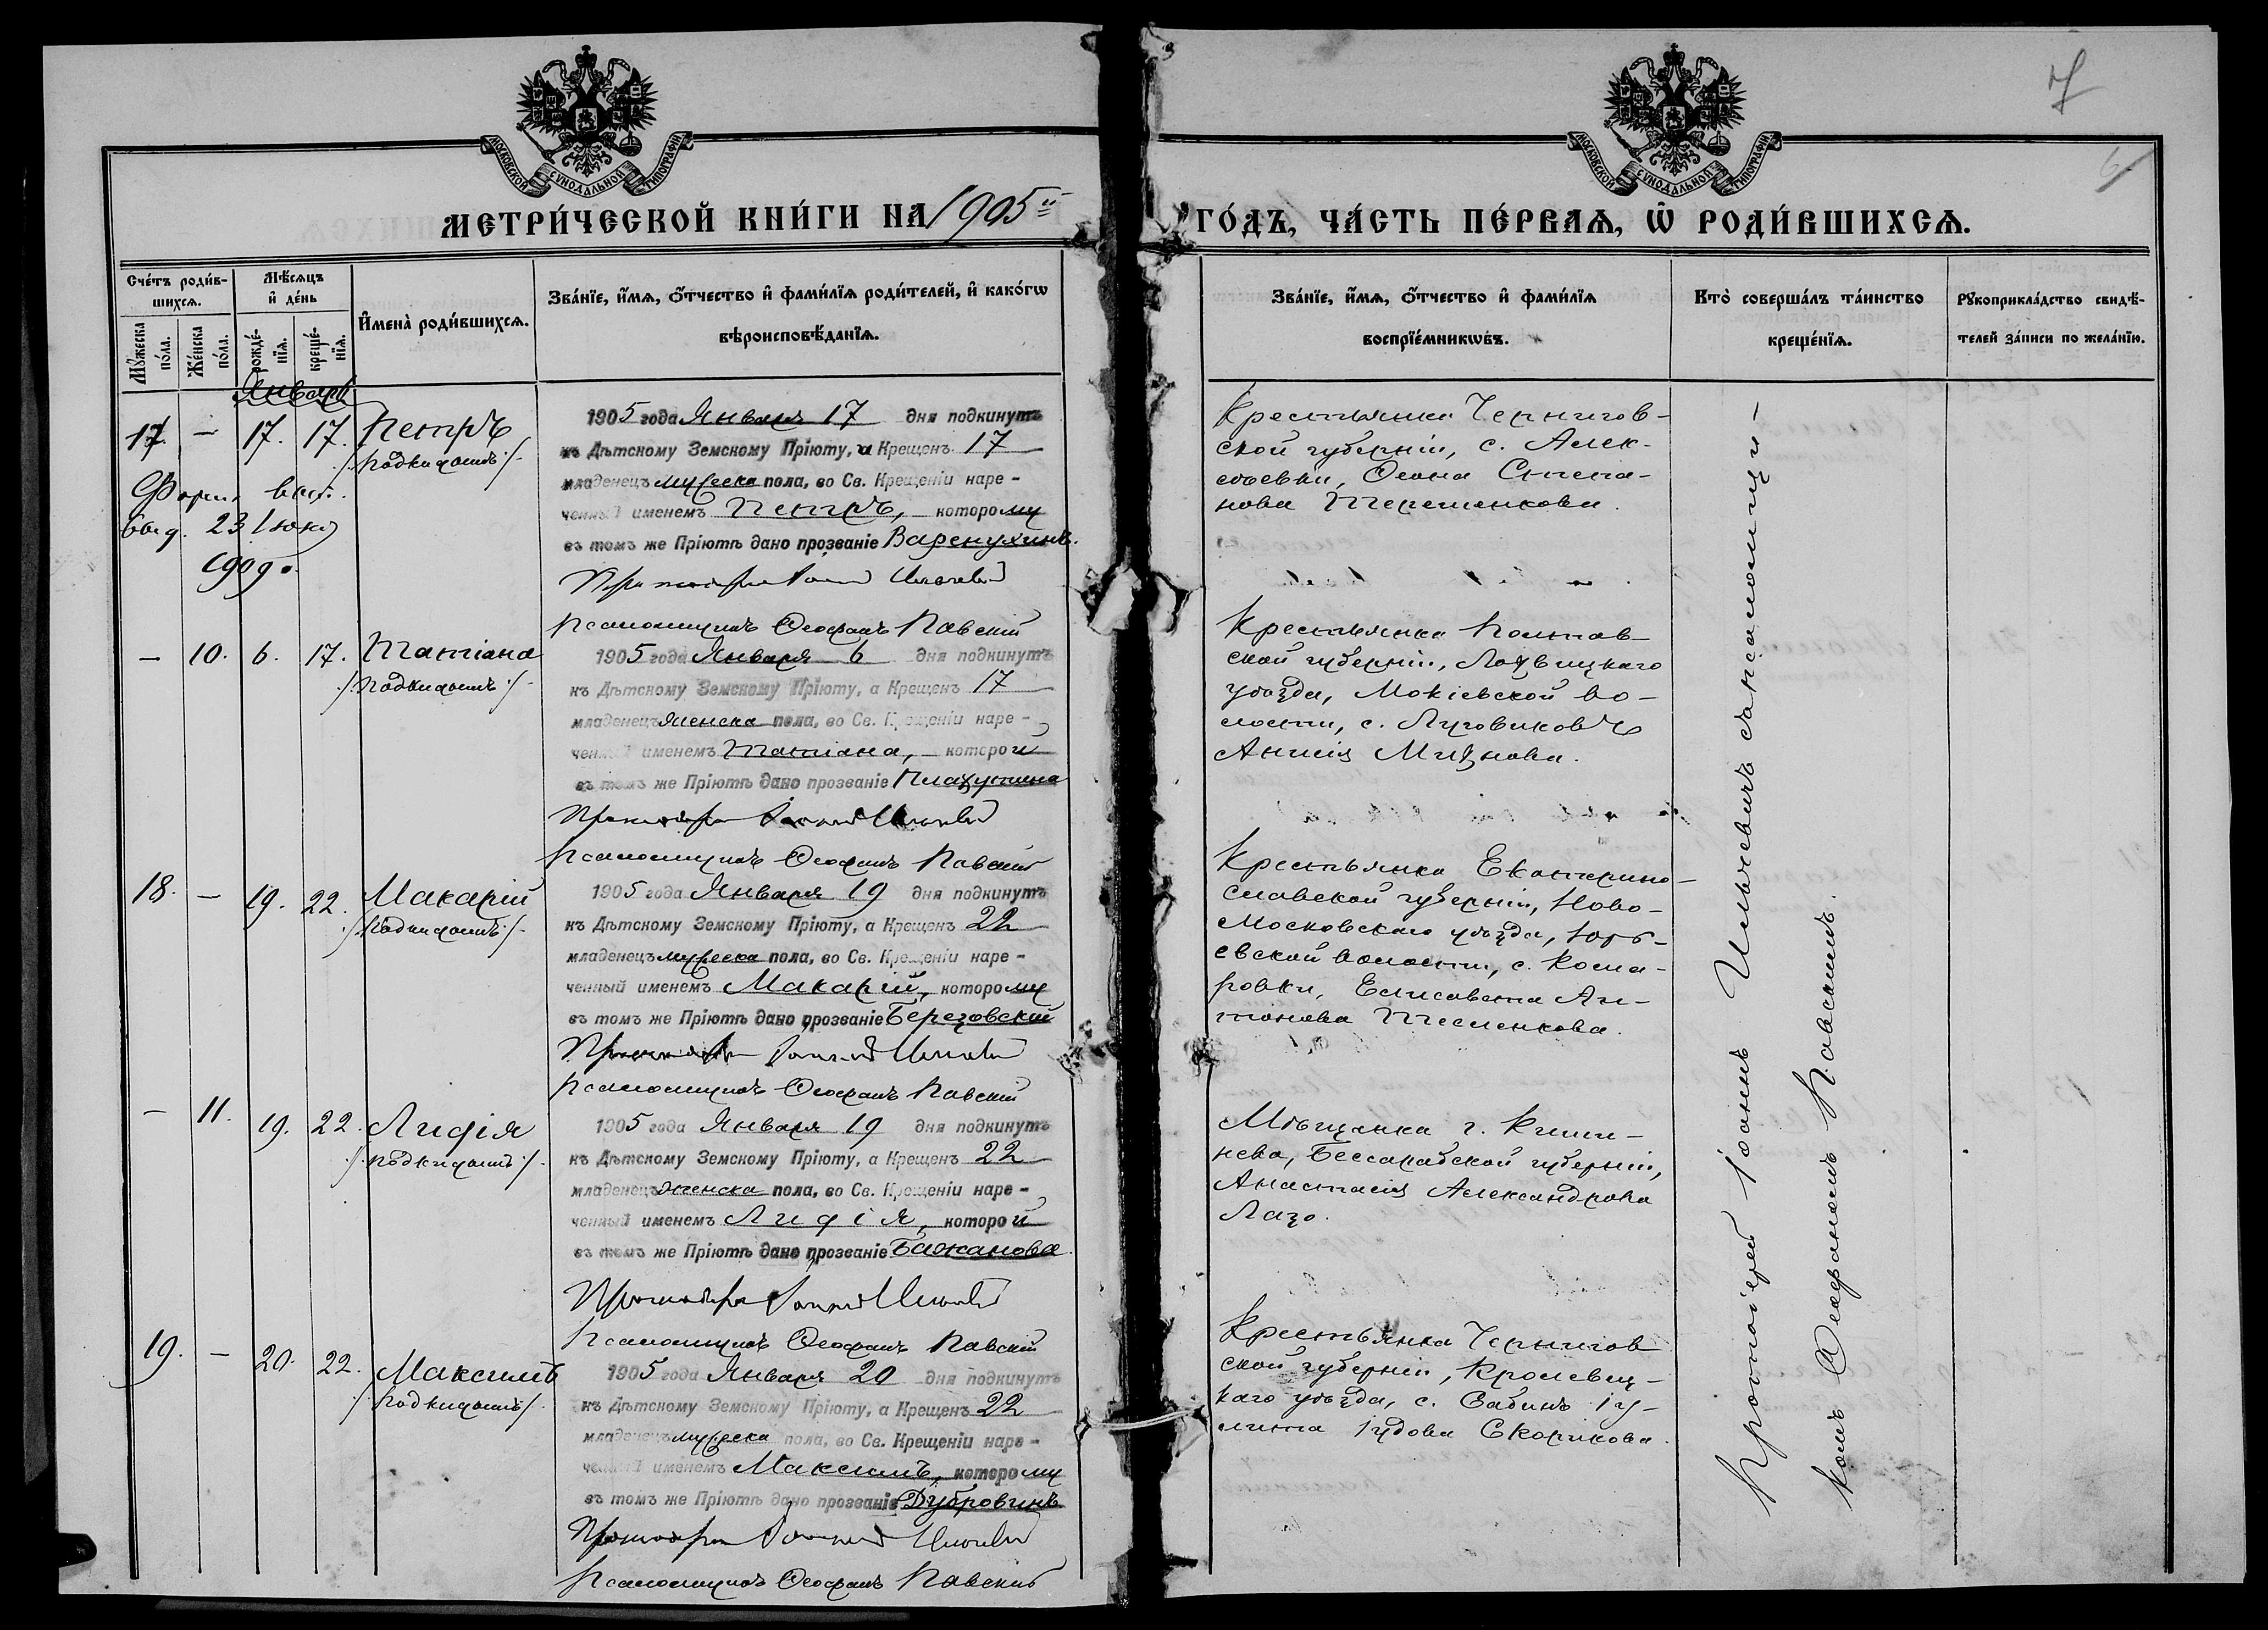 7
6
МОСКОВСКОЙ СѴНОДАЛЬНОЙ ТИПОГРАФІИ
МОСКОВСКОЙ СѴНОДАЛЬНОЙ ТИПОГРАФІИ
МЕТРИ́ЧЕСКОЙ КНИ́ГИ НА 1905й ГО́ДЪ, ЧА́СТЬ ПЕ́РВАѦ, Ѿ РОДИ́ВШИХСѦ.
Сче́тъ роди́в-
шихсѧ.
Мꙋ́жеска по́ла.
Же́нска по́ла.
Мѣ́сѧцъ
и҆ де́нь
рожде́-
нїѧ.
креще́-
нїѧ.
И҆мена̀ роди́вшихсѧ.
Зва́нїе, и҆́мѧ, ѻ҆́тчество и҆ фами́лїѧ роди́телей, и҆ како́гѡ
вѣроисповѣ́данїѧ.
Зва́нїе, и҆́мѧ, ѻ҆́тчество и҆ фами́лїѧ
воспрїе́мникѡвъ.
Кто̀ соверша́лъ та́инство
креще́нїѧ.
Рꙋкоприкла́дство свидѣ́-
телей за́писи по жела́нїю.
Январь
17. — 17. 17. Петръ
/:подкидышъ:/
выд. 23
1909 г.
1905 года Января 17 дня подкинутъ
къ Дѣтскому Земскому Пріюту, а Крещенъ 17
младенецъ мужеска пола, во Св. Крещеніи наре-
ченный именемъ Петръ, которому
въ томъ же Пріютѣ дано прозваніе Варенухинъ.
Псаломщикъ Ѳеофанъ Павскій
Крестьянка Чернигов-
ской губерніи, с. Алек-
сѣевки, Степа-
нова Терещенкова.
— 10. 6. 17. Татіана
/:подкидышъ:/
1905 года Января 6 дня подкинутъ
къ Дѣтскому Земскому Пріюту, а Крещенъ 17
младенецъ женска пола, во Св. Крещеніи наре-
ченный именемъ Татіана, которой
въ томъ же Пріютѣ дано прозваніе Плахутина
Псаломщикъ Ѳеофанъ Павскій
Крестьянка Полтав-
ской губерніи, Лохвицкаго
уѣзда, Мокіевской во-
лости, с. Луговиковъ
Анисія
18. — 19. 22. Макарій
/:подкидышъ:/
1905 года Января 19 дня подкинутъ
къ Дѣтскому Земскому Пріюту, а Крещенъ 22
младенецъ мужеска пола, во Св. Крещеніи наре-
ченный именемъ Макарій, которому
въ томъ же Пріютѣ дано прозваніе Березовскій
Псаломщикъ Ѳеофанъ Павскій
Крестьянка Екатерино-
славской губерніи, Ново-
московскаго уѣзда, Юрь-
евской волости, с. Кома-
ровки, Елисавета Ан-
тонова Тесленкова.
— 11. 19. 22. Лидія
/:подкидышъ:/
1905 года Января 19 дня подкинутъ
къ Дѣтскому Земскому Пріюту, а Крещенъ 22
младенецъ женска пола, во Св. Крещеніи наре-
ченный именемъ Лидія, которой
въ томъ же Пріютѣ дано прозваніе Бажанова.
Псаломщикъ Ѳеофанъ Павскій
Мѣщанка г. Киши-
нева, Бессарабской губерніи,
Анастасія Александрова
Лазо.
19. — 20. 22. Максимъ
/:подкидышъ:/
1905 года Января 20 дня подкинутъ
къ Дѣтскому Земскому Пріюту, а Крещенъ 22
младенецъ мужеска пола, во Св. Крещеніи наре-
ченный именемъ Максимъ, которому
въ томъ же Пріютѣ дано прозваніе Дубровинъ
Псаломщикъ Ѳеофанъ Павскій
Крестьянка Чернигов
ской губерніи, Кролевец-
каго уѣзда, с. Іу-
литта Іудова Скорикова.
Протоіерей Іоаннъ Ильичевичъ съ псаломщи-
комъ Ѳеофаномъ Павскимъ.